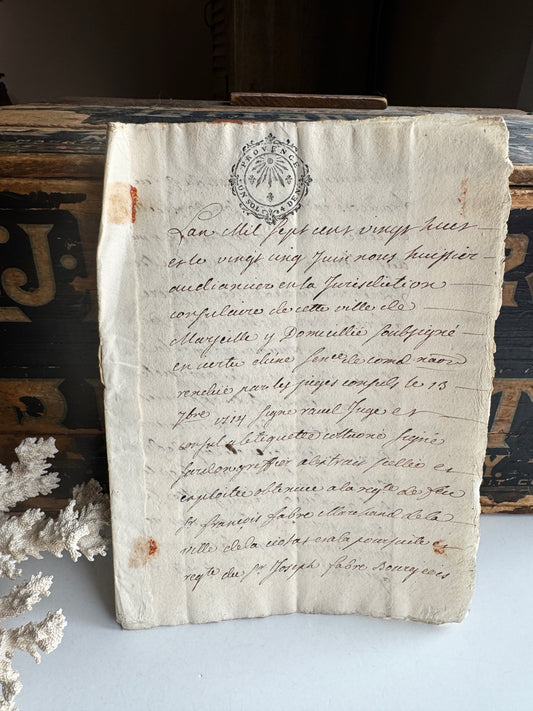 PROVENCE
UN SOL 4 DEN
Lan Mil sept cent vingt huit
et le vingt cinq Juin nous huissier
audiancier en la Jurisdiction
consulaire de cette ville de
Marseille y Domicillié soubsigné
en vertu dune senᶜᵉ de
rendue par les juges consuls le 13
7bre 1714 signé Juge et
consul
signé
griffier sellée et
exploitée obtenue a la reqte de feu
sr francois fabre marchand de la
ville de la ciotat et a la poursuite et
reqte du sr Joseph fabre Bourgeois
J.